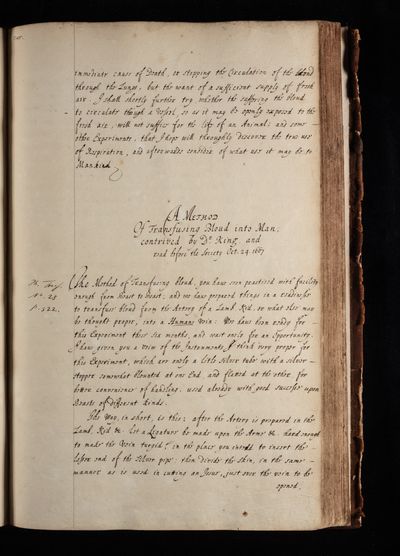 immediate cause of Death, or stopping the Circulation of the bloud
through the Lungs, but the want of a sufficient supply of fresh
air. I shall shortly further try whether the suffering the bloud
to circulate through a vessel, so as it may be openly exposed to the
fresh air, will not suffice for the life of an Animal; and some
other Experiments, that I hope will throughly discover the true use
of Respiration, and afterwards consider of what use it may be to
Mankind
A Method
Of Transfusing Bloud into Man,
contrived by Dr. King, and
read before the Society Oct. 24. 1667
The Method of Transfusing bloud, you have seen practised with facility
enough from beast to beast; and we have prepared things in a readinesse
to transfuse bloud from the Artery of a Lamb, Kid, or what else may
be thought proper, into a Humane vein: We have been ready for
this Experiment these six months, and wait onely for an Opportunity.
I have given you a view of the Instruments, I think very proper for
this Experiment, which are onely a little silver tube with a silver
stopper somewhat blunted at one End, and flated at the other for
better convenience of handling: used already with good successe upon
Beasts of different kinds.
The way, in short, is this: after the Artery is prepared in the
Lamb, Kid &c. let a Ligature be made upon the Arme &c. hard enough
to make the Vein turgid, in the place you intend to insert the
lesser end of the silver pipe: then divide the skin, in the same
manner as is used in cutting an Issue, just over the vein to be
opened.
No. 28
p. 522.